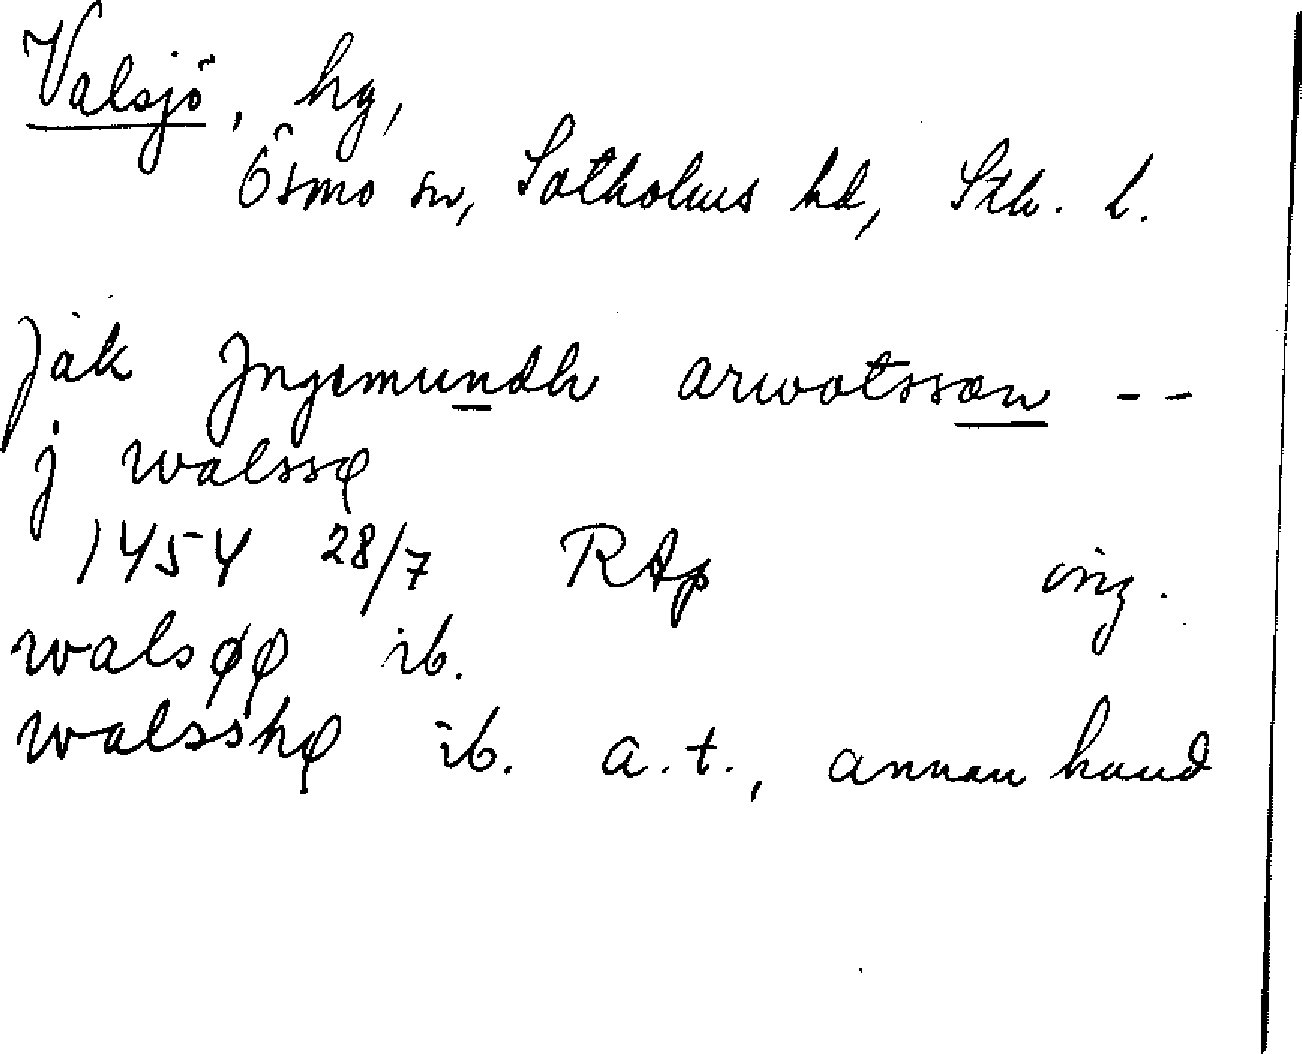 Valsjö, hg,
Ösmo sn, Sotholms hd, Sth. l.
Jak Jngemundh arwatsson --
j walssø
1454 28/7 RAp
walsøø ib.
walsshø ib. a.t., annan hand